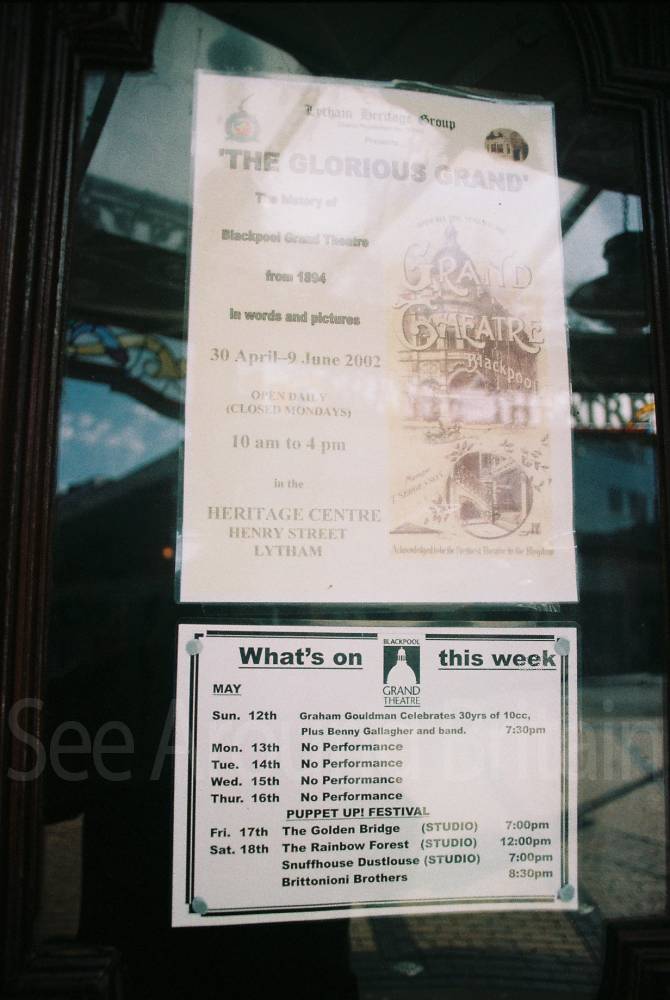 Lytham Heritage Group
Presents
'THE GLORIOUS GRAND'
The history of
Blackpool Grand Theatre
from 1894
In words and pictures
30 April–9 June 2002
OPEN DAILY
(CLOSED MONDAYS)
10 am to 4 pm
in the
HERITAGE CENTRE
HENRY STREET
LYTHAM
GRAND
THEATRE
Blackpool
Manager
Acknowledged to be the Prettiest Theatre in the Kingdom
TRE
What's on this week
BLACKPOOL
GRAND
THEATRE
MAY
Sun. 12th Graham Gouldman Celebrates 30yrs of 10cc,
Plus Benny Gallagher and band. 7:30pm
Mon. 13th No Performance
Tue. 14th No Performance
Wed. 15th No Performance
Thur. 16th No Performance
PUPPET UP! FESTIVAL
Fri. 17th The Golden Bridge (STUDIO) 7:00pm
Sat. 18th The Rainbow Forest (STUDIO) 12:00pm
Snuffhouse Dustlouse (STUDIO) 7:00pm
Brittonioni Brothers 8:30pm
See Around Britain